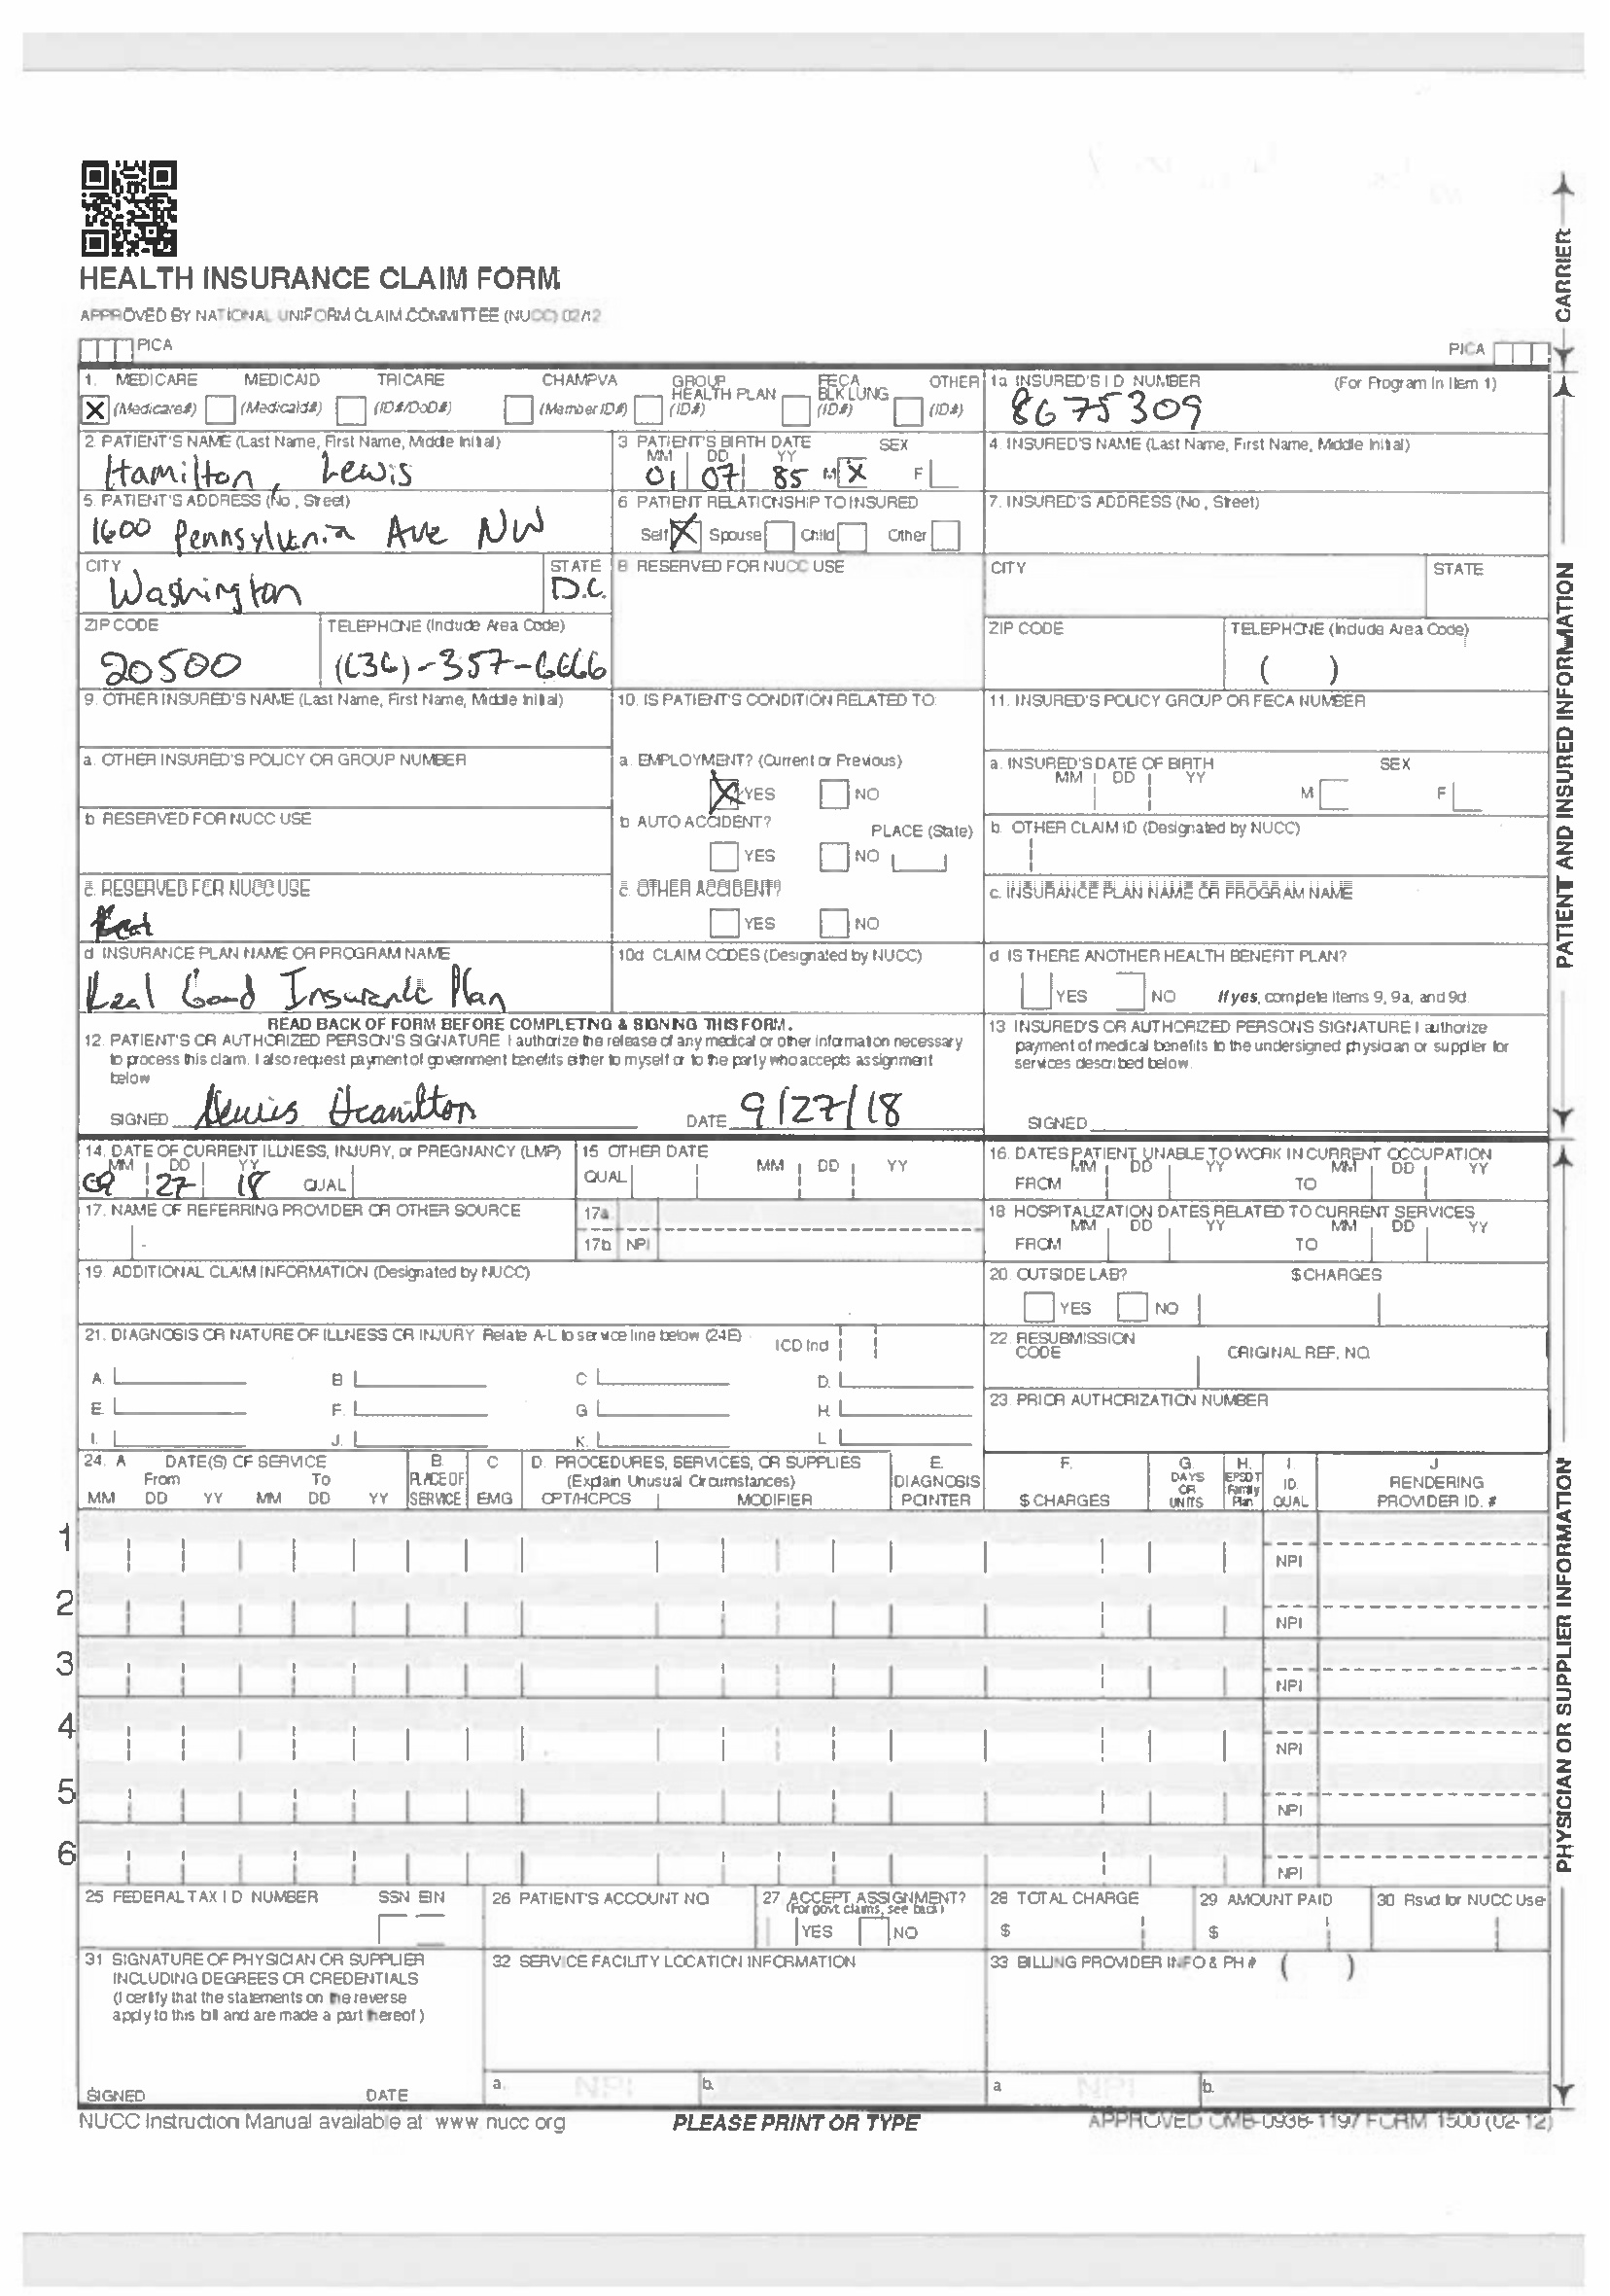 HEALTH INSURANCE CLAIM FORM
APPROVED BY NATIONAL UNIFORM CLAIM COMMITTEE (NUCC) 02/12
PICA
PICA
CARRIER
1. MEDICARE MEDICAID TRICARE CHAMPVA GROUP HEALTH PLAN FECA BLK LUNG OTHER
X (Medicare#) (Medicaid#) (ID#/DoD#) (Member ID#) (ID#) (ID#) (ID#)
1a INSURED'S I D NUMBER (For Program In Item 1)
8675309
2 PATIENT'S NAME (Last Name, First Name, Middle Initial)
Hamilton, Lewis
3 PATIENT'S BIRTH DATE SEX
MM DD YY
01 07 85 M X F
4. INSURED'S NAME (Last Name, First Name, Middle Initial)
5. PATIENT'S ADDRESS (No, Street)
1600 Pennsylvania Ave NW
6 PATIENT RELATIONSHIP TO INSURED
Self X Spouse Child Other
7. INSURED'S ADDRESS (No, Street)
CITY STATE
Washington D.C.
8 RESERVED FOR NUCC USE
CITY STATE
ZIP CODE TELEPHONE (Include Area Code)
20500
ZIP CODE TELEPHONE (Include Area Code)
( )
9. OTHER INSURED'S NAME (Last Name, First Name, Middle Initial)
10. IS PATIENT'S CONDITION RELATED TO
11. INSURED'S POLICY GROUP OR FECA NUMBER
a. OTHER INSURED'S POLICY OR GROUP NUMBER
a. EMPLOYMENT? (Current or Previous)
X YES NO
a. INSURED'S DATE OF BIRTH SEX
MM DD YY M F
b RESERVED FOR NUCC USE
b AUTO ACCIDENT? PLACE (State)
YES NO
b. OTHER CLAIM ID (Designated by NUCC)
c. RESERVED FOR NUCC USE
c. OTHER ACCIDENT?
YES NO
c. INSURANCE PLAN NAME OR PROGRAM NAME
d INSURANCE PLAN NAME OR PROGRAM NAME
Real Good Insurance Plan
10d CLAIM CODES (Designated by NUCC)
d IS THERE ANOTHER HEALTH BENEFIT PLAN?
YES NO If yes, complete items 9, 9a, and 9d
READ BACK OF FORM BEFORE COMPLETING & SIGNING THIS FORM.
12. PATIENT'S OR AUTHORIZED PERSON'S SIGNATURE I authorize the release of any medical or other information necessary
to process this claim. I also request payment of government benefits either to myself or to the party who accepts assignment
below
SIGNED Lewis Hamilton DATE 9/27/18
13 INSURED'S OR AUTHORIZED PERSON'S SIGNATURE I authorize
payment of medical benefits to the undersigned physician or supplier for
services described below.
SIGNED
PATIENT AND INSURED INFORMATION
14. DATE OF CURRENT ILLNESS, INJURY, or PREGNANCY (LMP)
MM DD YY
09 27 18 QUAL
15 OTHER DATE
QUAL MM DD YY
16. DATES PATIENT UNABLE TO WORK IN CURRENT OCCUPATION
MM DD YY MM DD YY
FROM TO
17. NAME OF REFERRING PROVIDER OR OTHER SOURCE
17a
17b NPI
18 HOSPITALIZATION DATES RELATED TO CURRENT SERVICES
MM DD YY MM DD YY
FROM TO
19. ADDITIONAL CLAIM INFORMATION (Designated by NUCC)
20. OUTSIDE LAB? $ CHARGES
YES NO
21. DIAGNOSIS OR NATURE OF ILLNESS OR INJURY Relate A-L to service line below (24E) ICD Ind
A. B C D.
E F. G H.
I. J. K. L
22. RESUBMISSION
CODE ORIGINAL REF. NO.
23. PRIOR AUTHORIZATION NUMBER
24. A DATE(S) OF SERVICE
From To
MM DD YY MM DD YY
B. PLACE OF SERVICE
C EMG
D. PROCEDURES, SERVICES, OR SUPPLIES
(Explain Unusual Circumstances)
CPT/HCPCS MODIFIER
E. DIAGNOSIS POINTER
F. $ CHARGES
G. DAYS OR UNITS
H. EPSDT Family Plan
I. ID. QUAL
J RENDERING PROVIDER ID. #
1 NPI
2 NPI
3 NPI
4 NPI
5 NPI
6 NPI
25 FEDERAL TAX I D NUMBER SSN EIN
26 PATIENT'S ACCOUNT NO
27 ACCEPT ASSIGNMENT?
(For govt claims, see back)
YES NO
28 TOTAL CHARGE
$
29 AMOUNT PAID
$
30 Rsvd for NUCC Use
31 SIGNATURE OF PHYSICIAN OR SUPPLIER
INCLUDING DEGREES OR CREDENTIALS
(I certify that the statements on the reverse
apply to this bill and are made a part thereof)
SIGNED DATE
32 SERVICE FACILITY LOCATION INFORMATION
a. NPI b.
33 BILLING PROVIDER INFO & PH # ( )
a NPI b.
PHYSICIAN OR SUPPLIER INFORMATION
NUCC Instruction Manual available at www nucc org
PLEASE PRINT OR TYPE
APPROVED OMB-0938-1197 FORM 1500 (02-12)